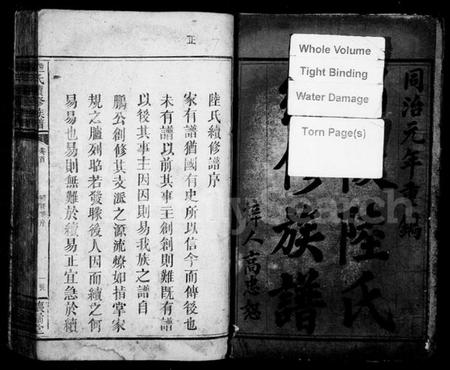 Whole Volume
Tight Binding
Water Damage
Torn Page(s)
同治元年
陸氏
修族譜
梓人高忠
正
陸氏續修譜序
家有譜猶國有史所以信今而傳後也
未有譜以前其事主創創則難既有譜
以後其事主因因則易我族之譜自
鵬公創修其支派之源流燎如指掌家
規之臚列昭若發矇後人因而續之何
易易也易則無難於續易正宜急於續
mySearch